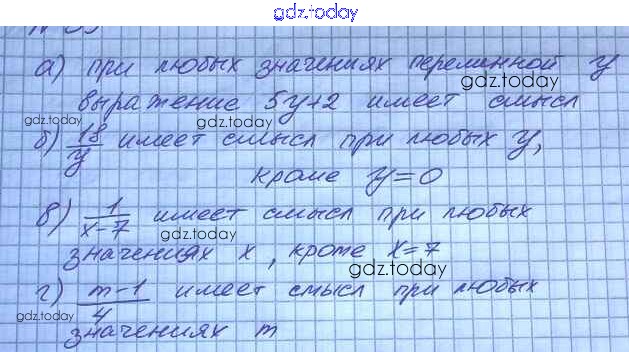 gdz.today
а) при любых значениях переменной y
gdz.today
выражение 5y+2 имеет смысл
gdz.today gdz.today
б) 18/y имеет смысл при любых y,
gdz.today
кроме y=0
в) 1/x-7 имеет смысл при любых
gdz.today
значениях x, кроме x=7
gdz.today
г) m-1/4 имеет смысл при любых
gdz.today
значениях m